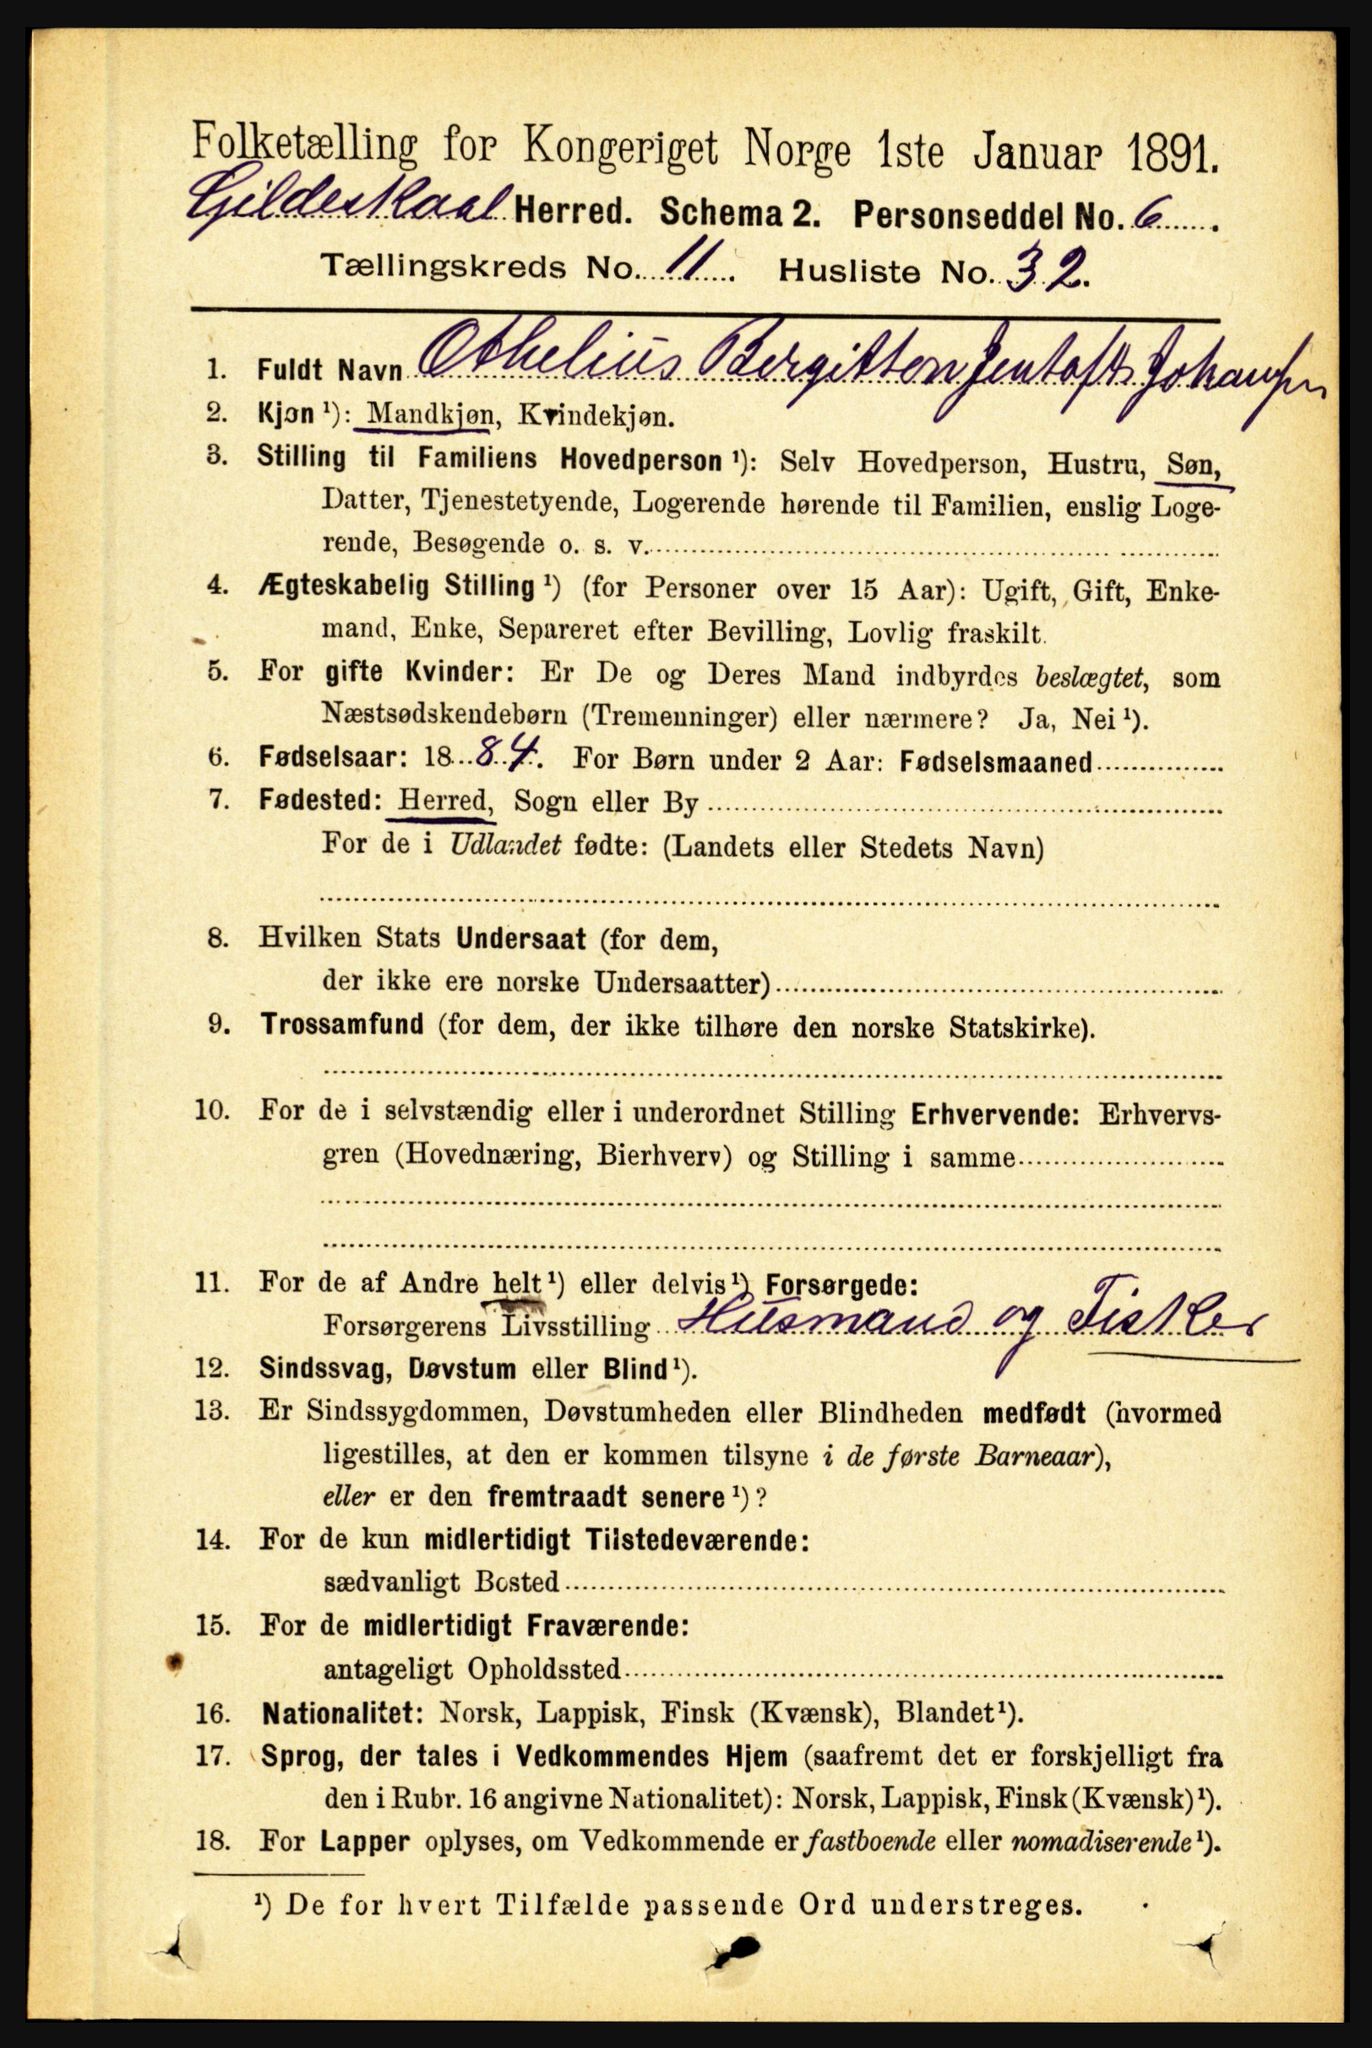 Folketælling for Kongeriget Norge 1ste Januar 1891.
Gildeskaal Herred. Schema 2. Personseddel No. 6.
Tællingskreds No. 11. Husliste No. 32.
1. Fuldt Navn Othelius Bergitton Jentoft Johansen
2. Kjøn ¹): Mandkjøn, Kvindekjøn.
3. Stilling til Familiens Hovedperson ¹): Selv Hovedperson, Hustru, Søn,
Datter, Tjenestetyende, Logerende hørende til Familien, enslig Loge-
rende, Besøgende o. s. v.
4. Ægteskabelig Stilling ¹) (for Personer over 15 Aar): Ugift, Gift, Enke-
mand, Enke, Separeret efter Bevilling, Lovlig fraskilt.
5. For gifte Kvinder: Er De og Deres Mand indbyrdes beslægtet, som
Næstsødskendebørn (Tremenninger) eller nærmere? Ja, Nei ¹).
6. Fødselsaar: 1884. For Børn under 2 Aar: Fødselsmaaned
7. Fødested: Herred, Sogn eller By
For de i Udlandet fødte: (Landets eller Stedets Navn)
8. Hvilken Stats Undersaat (for dem,
der ikke ere norske Undersaatter)
9. Trossamfund (for dem, der ikke tilhøre den norske Statskirke).
10. For de i selvstændig eller i underordnet Stilling Erhvervende: Erhvervs-
gren (Hovednæring, Bierhverv) og Stilling i samme
11. For de af Andre helt ¹) eller delvis ¹) Forsørgede:
Forsørgerens Livsstilling Husmand og Fisker
12. Sindssvag, Døvstum eller Blind ¹).
13. Er Sindssygdommen, Døvstumheden eller Blindheden medfødt (hvormed
ligestilles, at den er kommen tilsyne i de første Barneaar),
eller er den fremtraadt senere ¹)?
14. For de kun midlertidigt Tilstedeværende:
sædvanligt Bosted
15. For de midlertidigt Fraværende:
antageligt Opholdssted
16. Nationalitet: Norsk, Lappisk, Finsk (Kvænsk), Blandet ¹).
17. Sprog, der tales i Vedkommendes Hjem (saafremt det er forskjelligt fra
den i Rubr. 16 angivne Nationalitet): Norsk, Lappisk, Finsk (Kvænsk) ¹).
18. For Lapper oplyses, om Vedkommende er fastboende eller nomadiserende ¹).
¹) De for hvert Tilfælde passende Ord understreges.